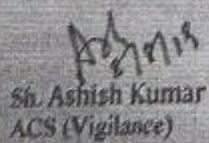 Sh. Ashish Kumar
ACS (Vigilance)